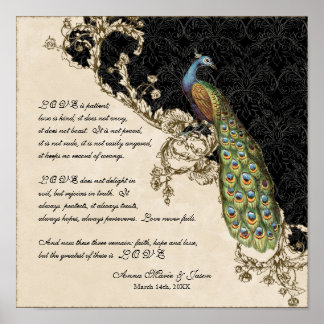 LOVE is patient;
love is kind, it does not envy,
it does not boast. It is not proud,
it is not rude, it is not easily angered,
it keeps no record of wrongs.
LOVE does not delight in
evil, but rejoices in truth. It
always protects, it always trusts,
always hopes, always perseveres. Love never fails.
And now these three remain: faith, hope and love,
but the greatest of these is LOVE
Anna Marie & Jason
March 14th, 20XX